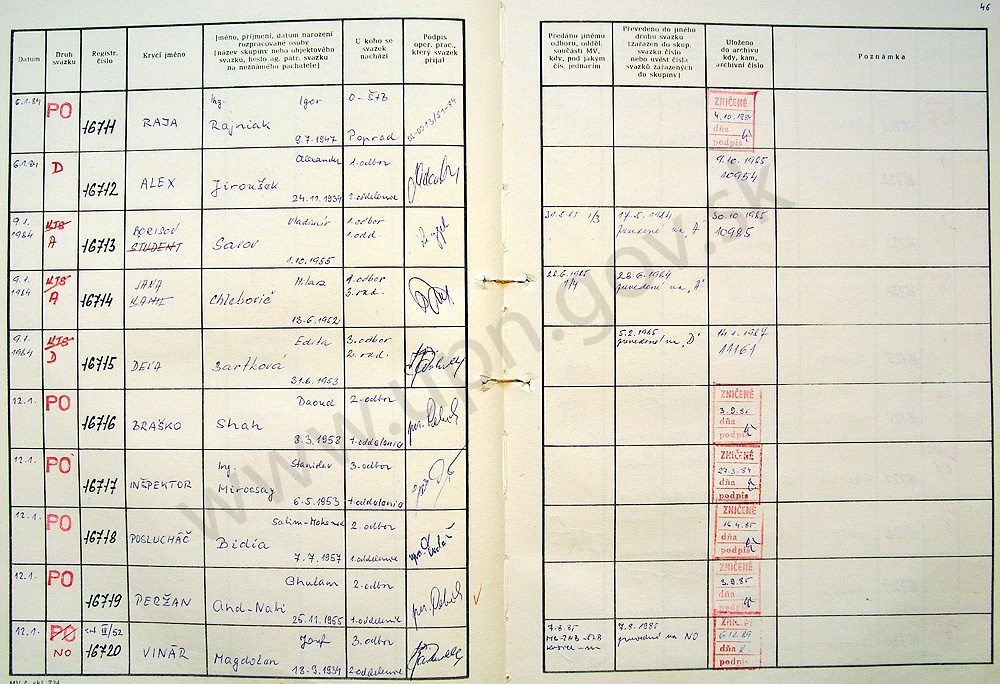 46
Datum
Druh svazku
Registr. číslo
Krycí jméno
Jméno, příjmení, datum narození
rozpracované osoby
[název skupiny nebo objektového
svazku, heslo ag. pátr. svazku
na neznámého pachatele]
U koho se
svazek
nachází
Podpis
oper. prac.,
který svazek
přijal
Předáno jinému
odboru, odděl.
součásti MV,
kdy, pod jakým
čís. jednacím
Převedeno do jiného
druhu svazku
[zařazen do skup.
svazku číslo
nebo uvést čísla
svazků zařazených
do skupiny]
Uloženo
do archivu
kdy, kam,
archivní číslo
Poznámka
6.1.84 PO 16711 RAJA Ing. Igor Rajniak 9.7.1947 O-ŠTB Poprad
ZNIČENÉ 4.10.1984 dňa podpis
6.1.84 D 16712 ALEX Alexander Jiroušek 24.11.1934 1.odbor 2.oddelenie
9.10.1985 10954
9.1. 1984 KTS A 16713 BORISOV STUDENT Vladimír Savov 1.10.1955 1.odbor 1.odd.
17.5.1984 prevedené na "A" 30.10.1985 10985
9.1. 1984 KTS A 16714 JANA Milan Chlebovič 13.6.1952 1.odbor 3.rad.
28.6.1985 1/4 28.6.1984 prevedené na "A"
9.1. 1984 KTS D 16715 DEVA Edita Bartková 31.6.1953 3.odbor 2.rad.
5.2.1985 prevedené na "D" 14.1.1987 11161
12.1. PO 16716 BRAŠKO Daoud Shah 8.3.1958 2.odbor 1.oddelenie
ZNIČENÉ 3.9.85 dňa podpis
12.1. PO 16717 INŠPEKTOR Ing. Stanislav Mirossay 6.5.1953 3.odbor 1.oddelenie
ZNIČENÉ 27.3.84 dňa podpis
12.1. PO 16718 POSLUCHÁČ Bidia 7.7.1957 2.odbor 1.oddelenie
ZNIČENÉ 16.4.85 dňa podpis
12.1. PO 16719 PERŽAN Ghulam And-Nabi 25.11.1955 2.odbor 1.oddelenie
ZNIČENÉ 3.9.85 dňa podpis
12.1. PO NO 16720 VINÁR Jozef Magdolen 18.3.1934 3.odbor 2.oddelenie
7.8.85 7.8.1985 prevedené na NO 6.12.89 dňa podpis
www.upn.gov.sk